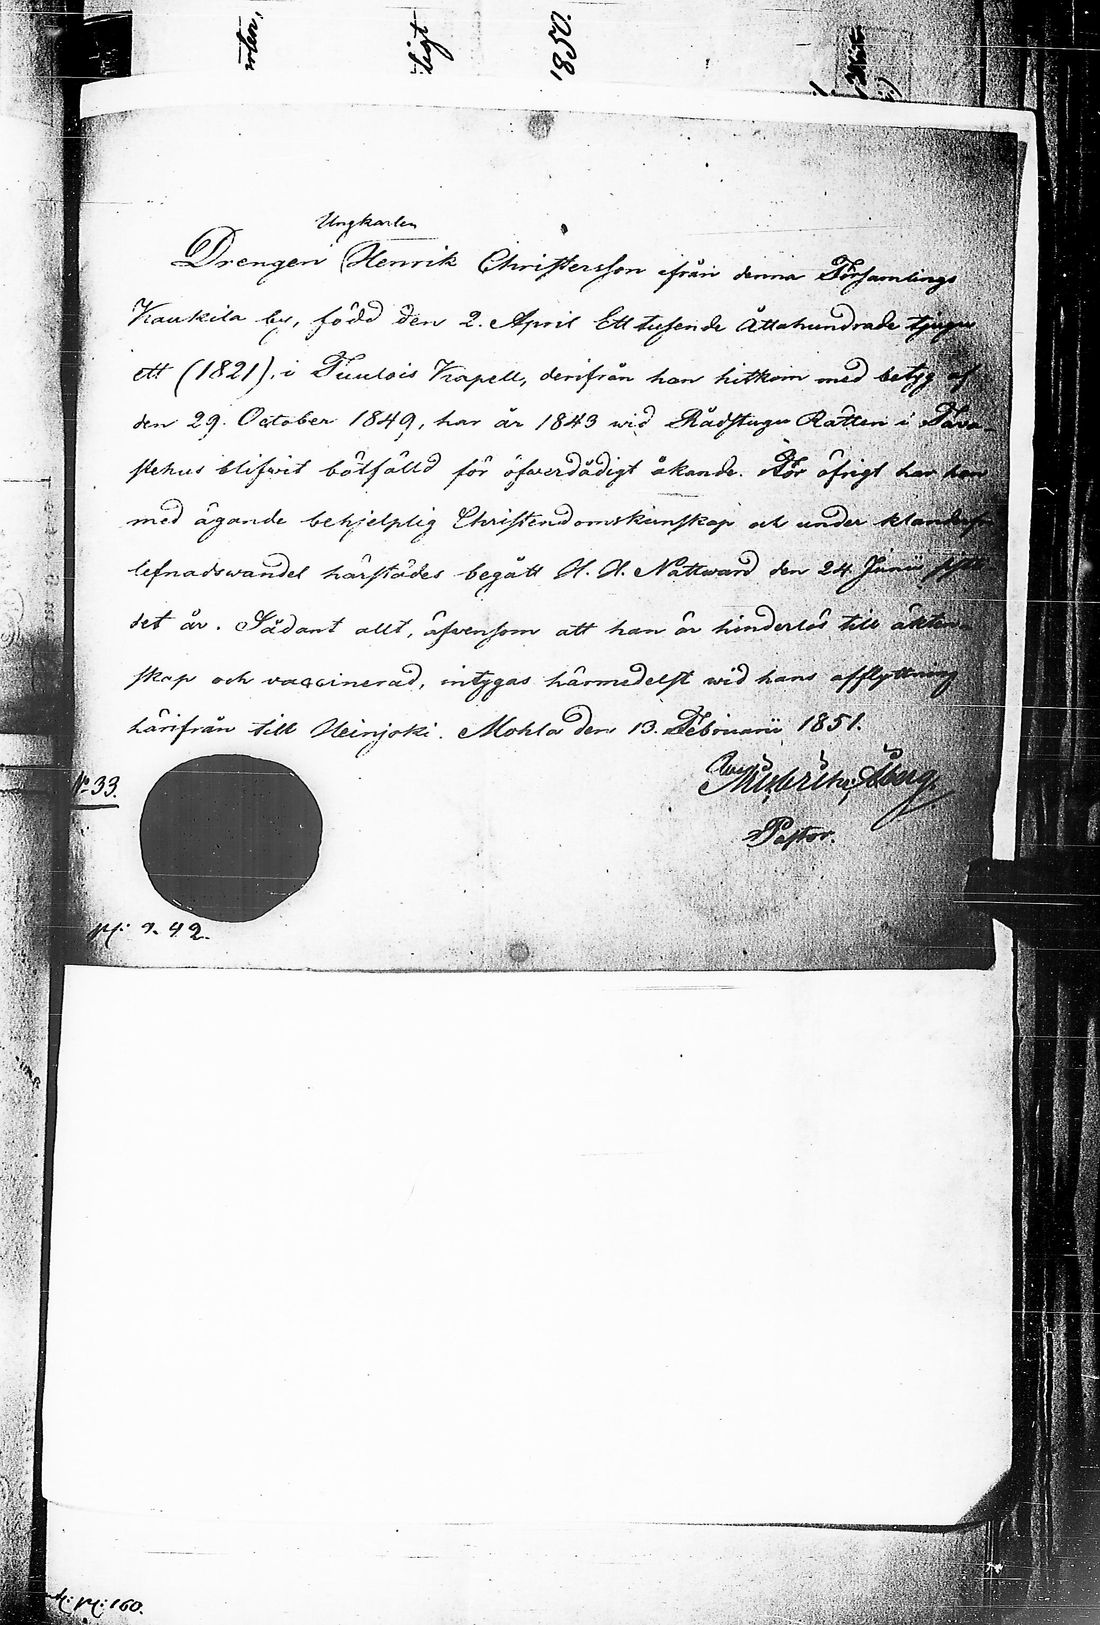 1850.
ligt
Ungkarlen
Drengen Henrik Christersson ifrån denna Församlings
Kaukila by, född den 2. April Ett tusende Åttahundrade tjugu
ett (1821), i Tuulois Kapell, derifrån han hitkom med betyg af
den 29. October 1849, har år 1843 wid Rådstugu Rätten i Tava-
stehus blifwit bötfälld för öfwerdådigt åkande. För öfrigt har han
med ägande behjelplig Christendomskunskap och under
lefnadswandel härstädes begått H. H. Nattward den 24. Junii
det år. Sådant allt, äfwensom att han är hinderlös till äkten-
skap och vaccinerad, intygas härmedelst wid hans afflyttning
härifrån till Heinjoki. Mohla den 13. Februarii 1851.
No 33.
Åberg
Pastor.
42.
160.